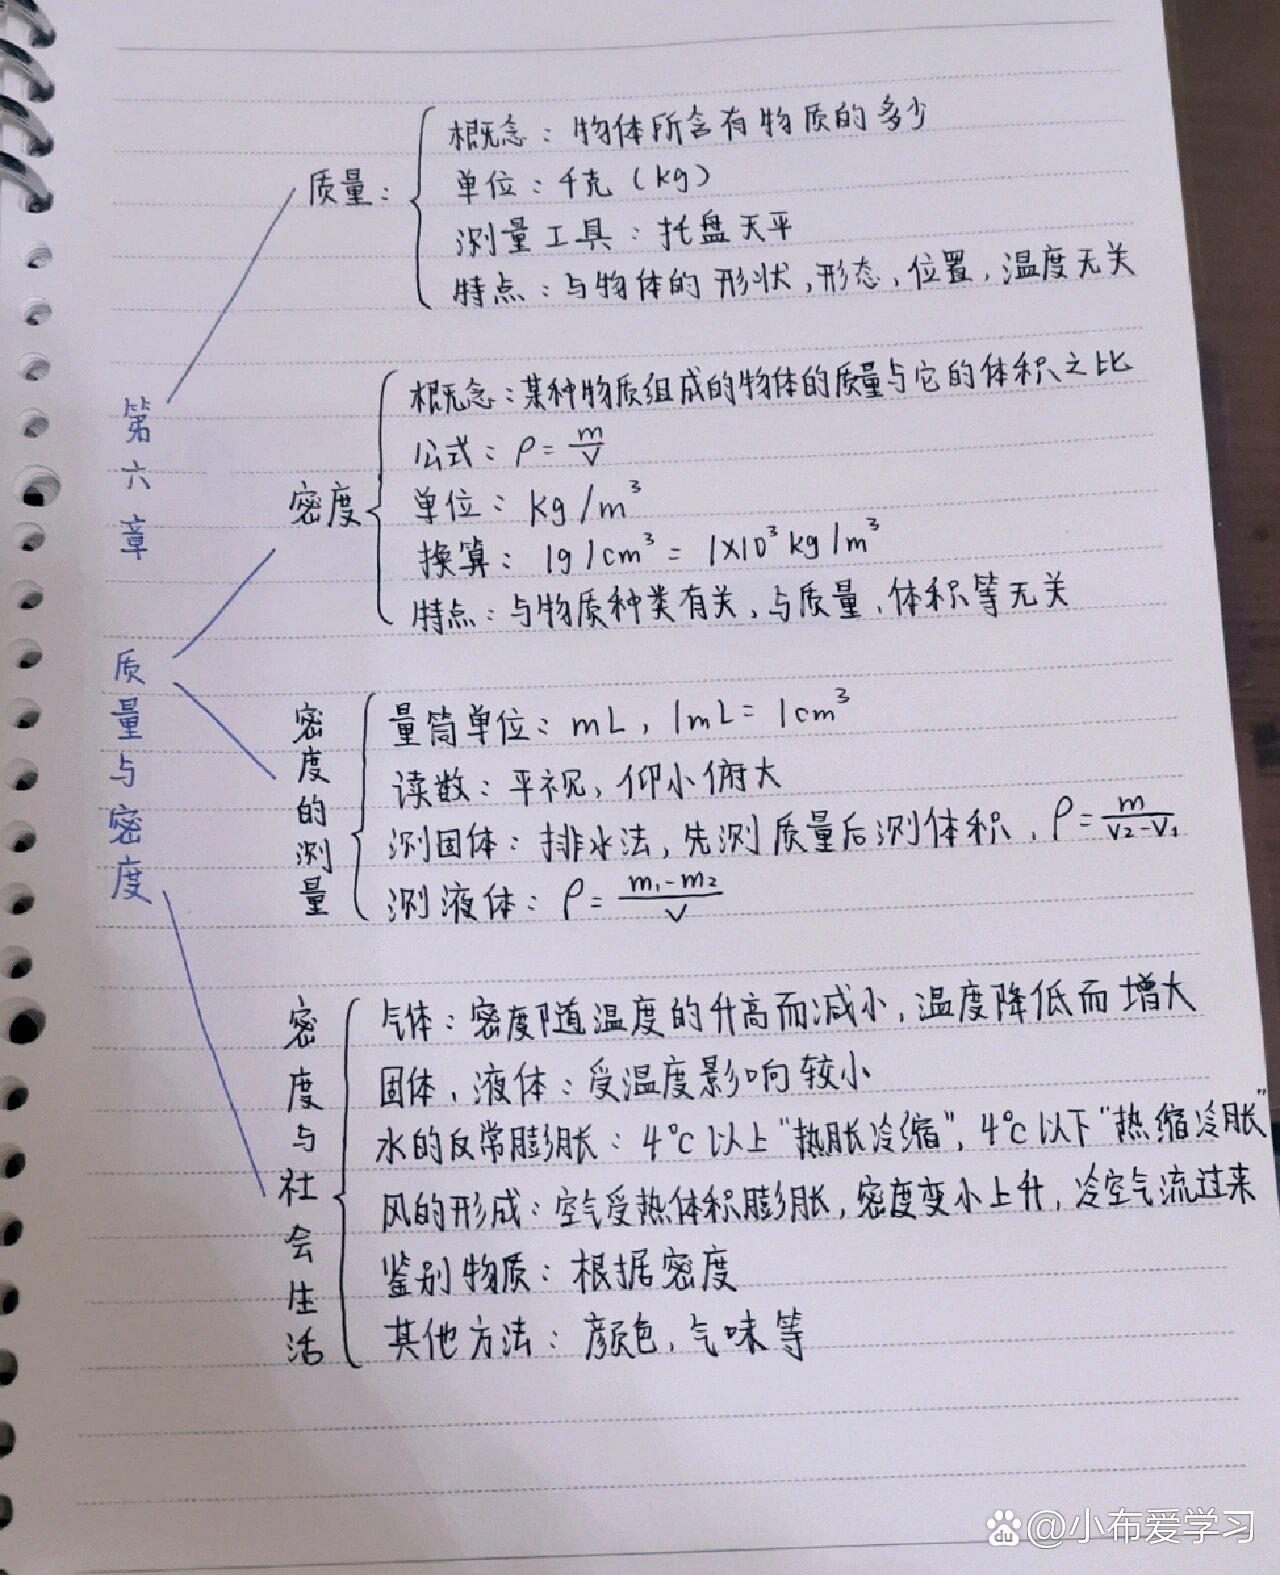 第六章 质量与密度
质量:
概念:物体所含有物质的多少
单位:千克(kg)
测量工具:托盘天平
特点:与物体的形状,形态,位置,温度无关
密度
概念:某种物质组成的物体的质量与它的体积之比
公式:ρ=m/V
单位:kg/m³
换算:1g/cm³=1×10³kg/m³
特点:与物质种类有关、与质量、体积等无关
密度的测量
量筒单位:mL,1mL=1cm³
读数:平视、仰小俯大
测固体:排水法,先测质量后测体积、ρ=m/(V₂-V₁)
测液体:ρ=(m₁-m₂)/V
密度与社会生活
气体:密度随温度的升高而减小,温度降低而增大
固体、液体:受温度影响较小
水的反常膨胀:4℃以上"热胀冷缩",4℃以下"热缩冷胀"
风的形成:空气受热体积膨胀,密度变小上升,冷空气流过来
鉴别物质:根据密度
其他方法:颜色,气味等
Bai du @小布爱学习